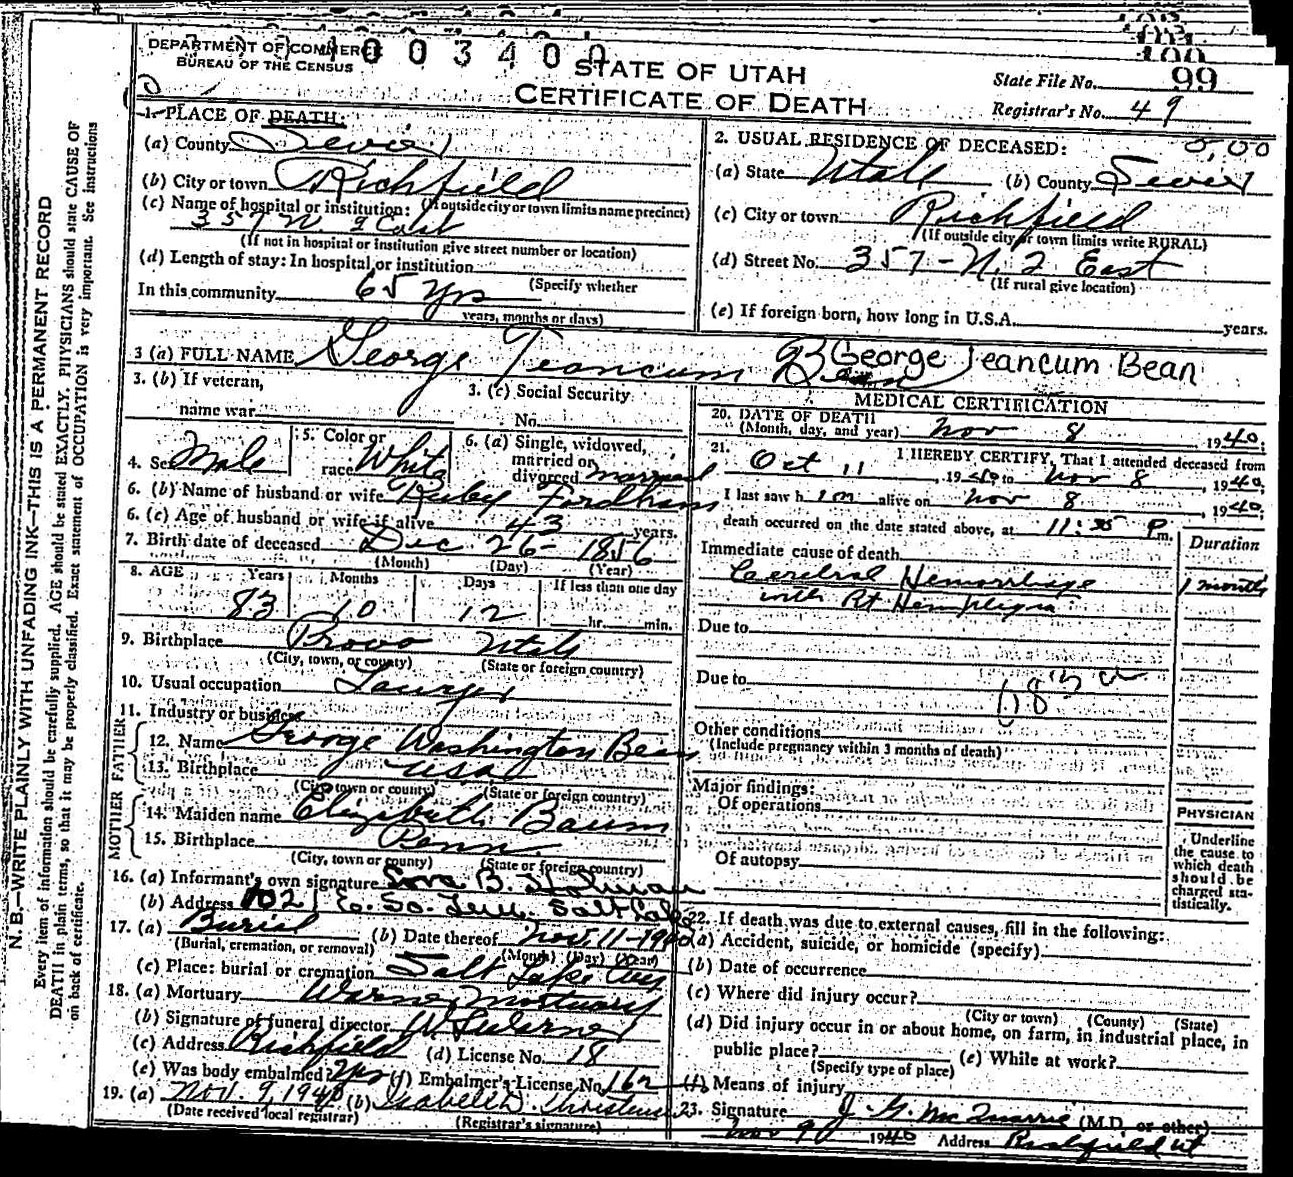 DEPARTMENT OF COMMERCE
BUREAU OF THE CENSUS
1003400
STATE OF UTAH
CERTIFICATE OF DEATH
State File No. 99
Registrar's No. 49
1. PLACE OF DEATH:
(a) County Sevier
(b) City or town Richfield
(c) Name of hospital or institution: (If outside city or town limits name precinct)
357 N 2 East
(If not in hospital or institution give street number or location)
(d) Length of stay: In hospital or institution
(Specify whether
In this community 65 yrs
years, months or days)
2. USUAL RESIDENCE OF DECEASED:
(a) State Utah (b) County Sevier
(c) City or town Richfield
(If outside city or town limits write RURAL)
(d) Street No. 357 - N. 2 East
(If rural give location)
(e) If foreign born, how long in U.S.A. years.
3 (a) FULL NAME George Teancum Bean George Teancum Bean
3. (b) If veteran,
name war
3. (c) Social Security
No.
4. Sex Male
5. Color or
race White
6. (a) Single, widowed,
married or
divorced married
6. (b) Name of husband or wife Ruby Fordham
6. (c) Age of husband or wife if alive 43 years.
7. Birth date of deceased Dec 26- 1856
(Month) (Day) (Year)
8. AGE Years Months Days If less than one day
83 10 12 hr. min.
9. Birthplace Provo Utah
(City, town, or county) (State or foreign country)
10. Usual occupation Lawyer
11. Industry or business
FATHER
12. Name George Washington Bean
13. Birthplace USA
(City town or county) (State or foreign country)
MOTHER
14. Maiden name Elizabeth Baum
15. Birthplace Penn.
(City, town or county) (State or foreign country)
16. (a) Informant's own signature B. Holman
(b) Address 1021 E. So. Tem. Salt Lake
17. (a) Burial (b) Date thereof Nov. 11-1940
(Burial, cremation, or removal) (Month) (Day) (Year)
(c) Place: burial or cremation Salt Lake City
18. (a) Mortuary Warner Mortuary
(b) Signature of funeral director Warner
(c) Address Richfield (d) License No. 18
(e) Was body embalmed? Yes (f) Embalmer's License No. 162
19. (a) Nov. 9, 1940 (b) Isabelle D. Christensen
(Date received local registrar) (Registrar's signature)
MEDICAL CERTIFICATION
20. DATE OF DEATH
(Month, day, and year) Nov 8 1940;
21. I HEREBY CERTIFY, That I attended deceased from
Oct 11, 1940 to Nov 8, 1940;
I last saw him alive on Nov 8, 1940;
death occurred on the date stated above, at 11:35 P m.
Immediate cause of death Duration
Cerebral Hemorrhage 1 month
with Rt Hemiplegia
Due to
Due to
Other conditions
(Include pregnancy within 3 months of death)
Major findings:
Of operations
Of autopsy
PHYSICIAN
Underline
the cause to
which death
should be
charged sta-
tistically.
22. If death was due to external causes, fill in the following:
(a) Accident, suicide, or homicide (specify)
(b) Date of occurrence
(c) Where did injury occur?
(City or town) (County) (State)
(d) Did injury occur in or about home, on farm, in industrial place, in
public place? (e) While at work?
(Specify type of place)
(f) Means of injury
23. Signature J. G. McQuarrie (M.D. or other)
Nov 9 1940 Address Richfield Ut
N. B.—WRITE PLAINLY WITH UNFADING INK—THIS IS A PERMANENT RECORD
Every item of information should be carefully supplied. AGE should be stated EXACTLY. PHYSICIANS should state CAUSE OF
DEATH in plain terms, so that it may be properly classified. Exact statement of OCCUPATION is very important. See instructions
on back of certificate.